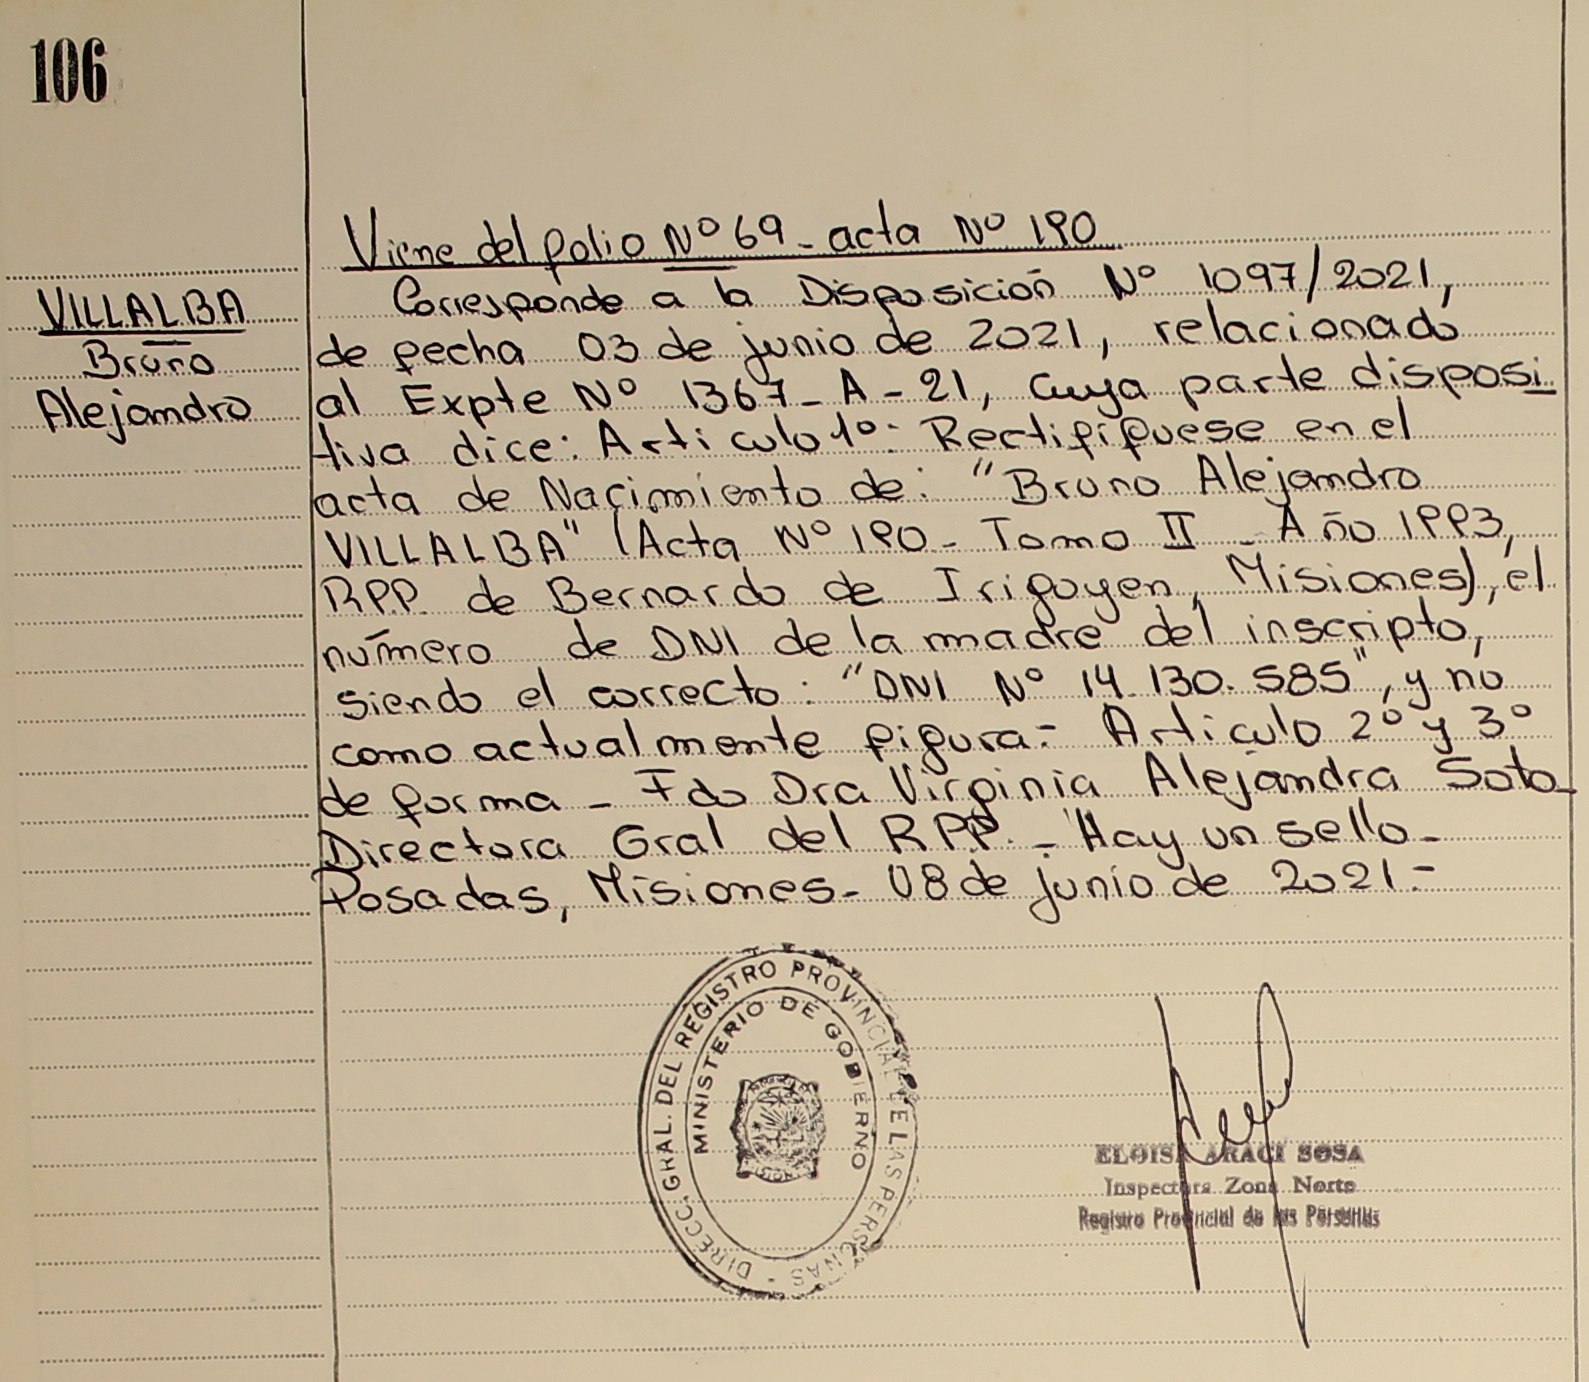 106
Viene del folio Nº 69 - acta Nº 190
VILLALBA
Bruno
Alejandro
Corresponde a la Disposición Nº 1097/2021,
de fecha 03 de junio de 2021, relacionado
al Expte Nº 1367 - A - 21, cuya parte disposi
tiva dice: Articulo 1º: Rectifiquese en el
acta de Nacimiento de: "Bruno Alejandro
VILLALBA" (Acta Nº 190 - Tomo II - Año 1993,
RPP. de Bernardo de Irigoyen, Misiones), el
número de DNI de la madre del inscripto,
siendo el correcto: "DNI Nº 14.130.585", y no
como actualmente figura.- Articulo 2º y 3º
de forma - Fdo Dra Virginia Alejandra Soto -
Directora Gral del RPP. - Hay un sello -
Posadas, Misiones - 08 de junio de 2021.-
DIRECC. GRAL. DEL REGISTRO PROVINCIAL DE LAS PERSONAS -
MINISTERIO DE GOBIERNO
ELOISA ARACI SOSA
Inspectora Zona Norte
Registro Provincial de las Personas